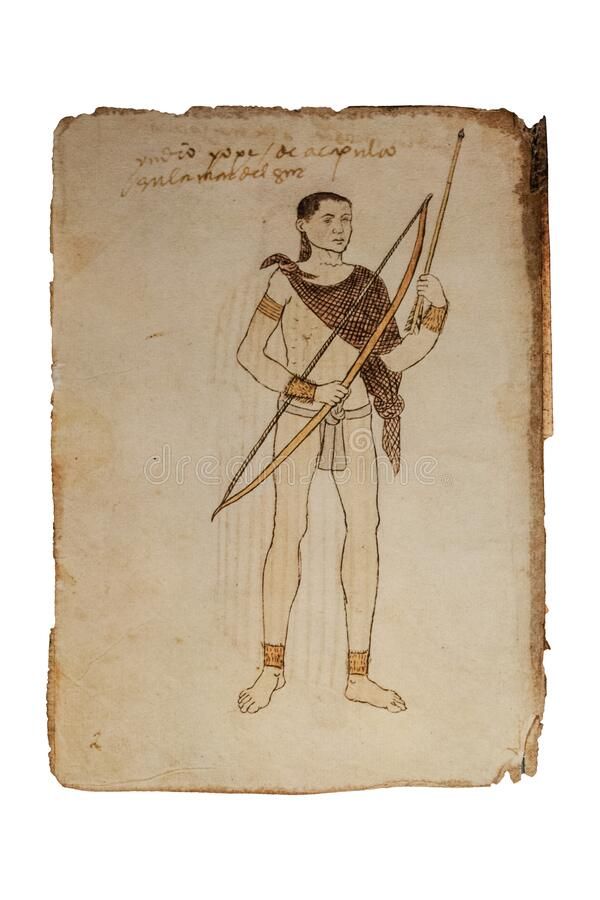 yndio yope / de acapulco
en la mar del sur
dreamstime
2